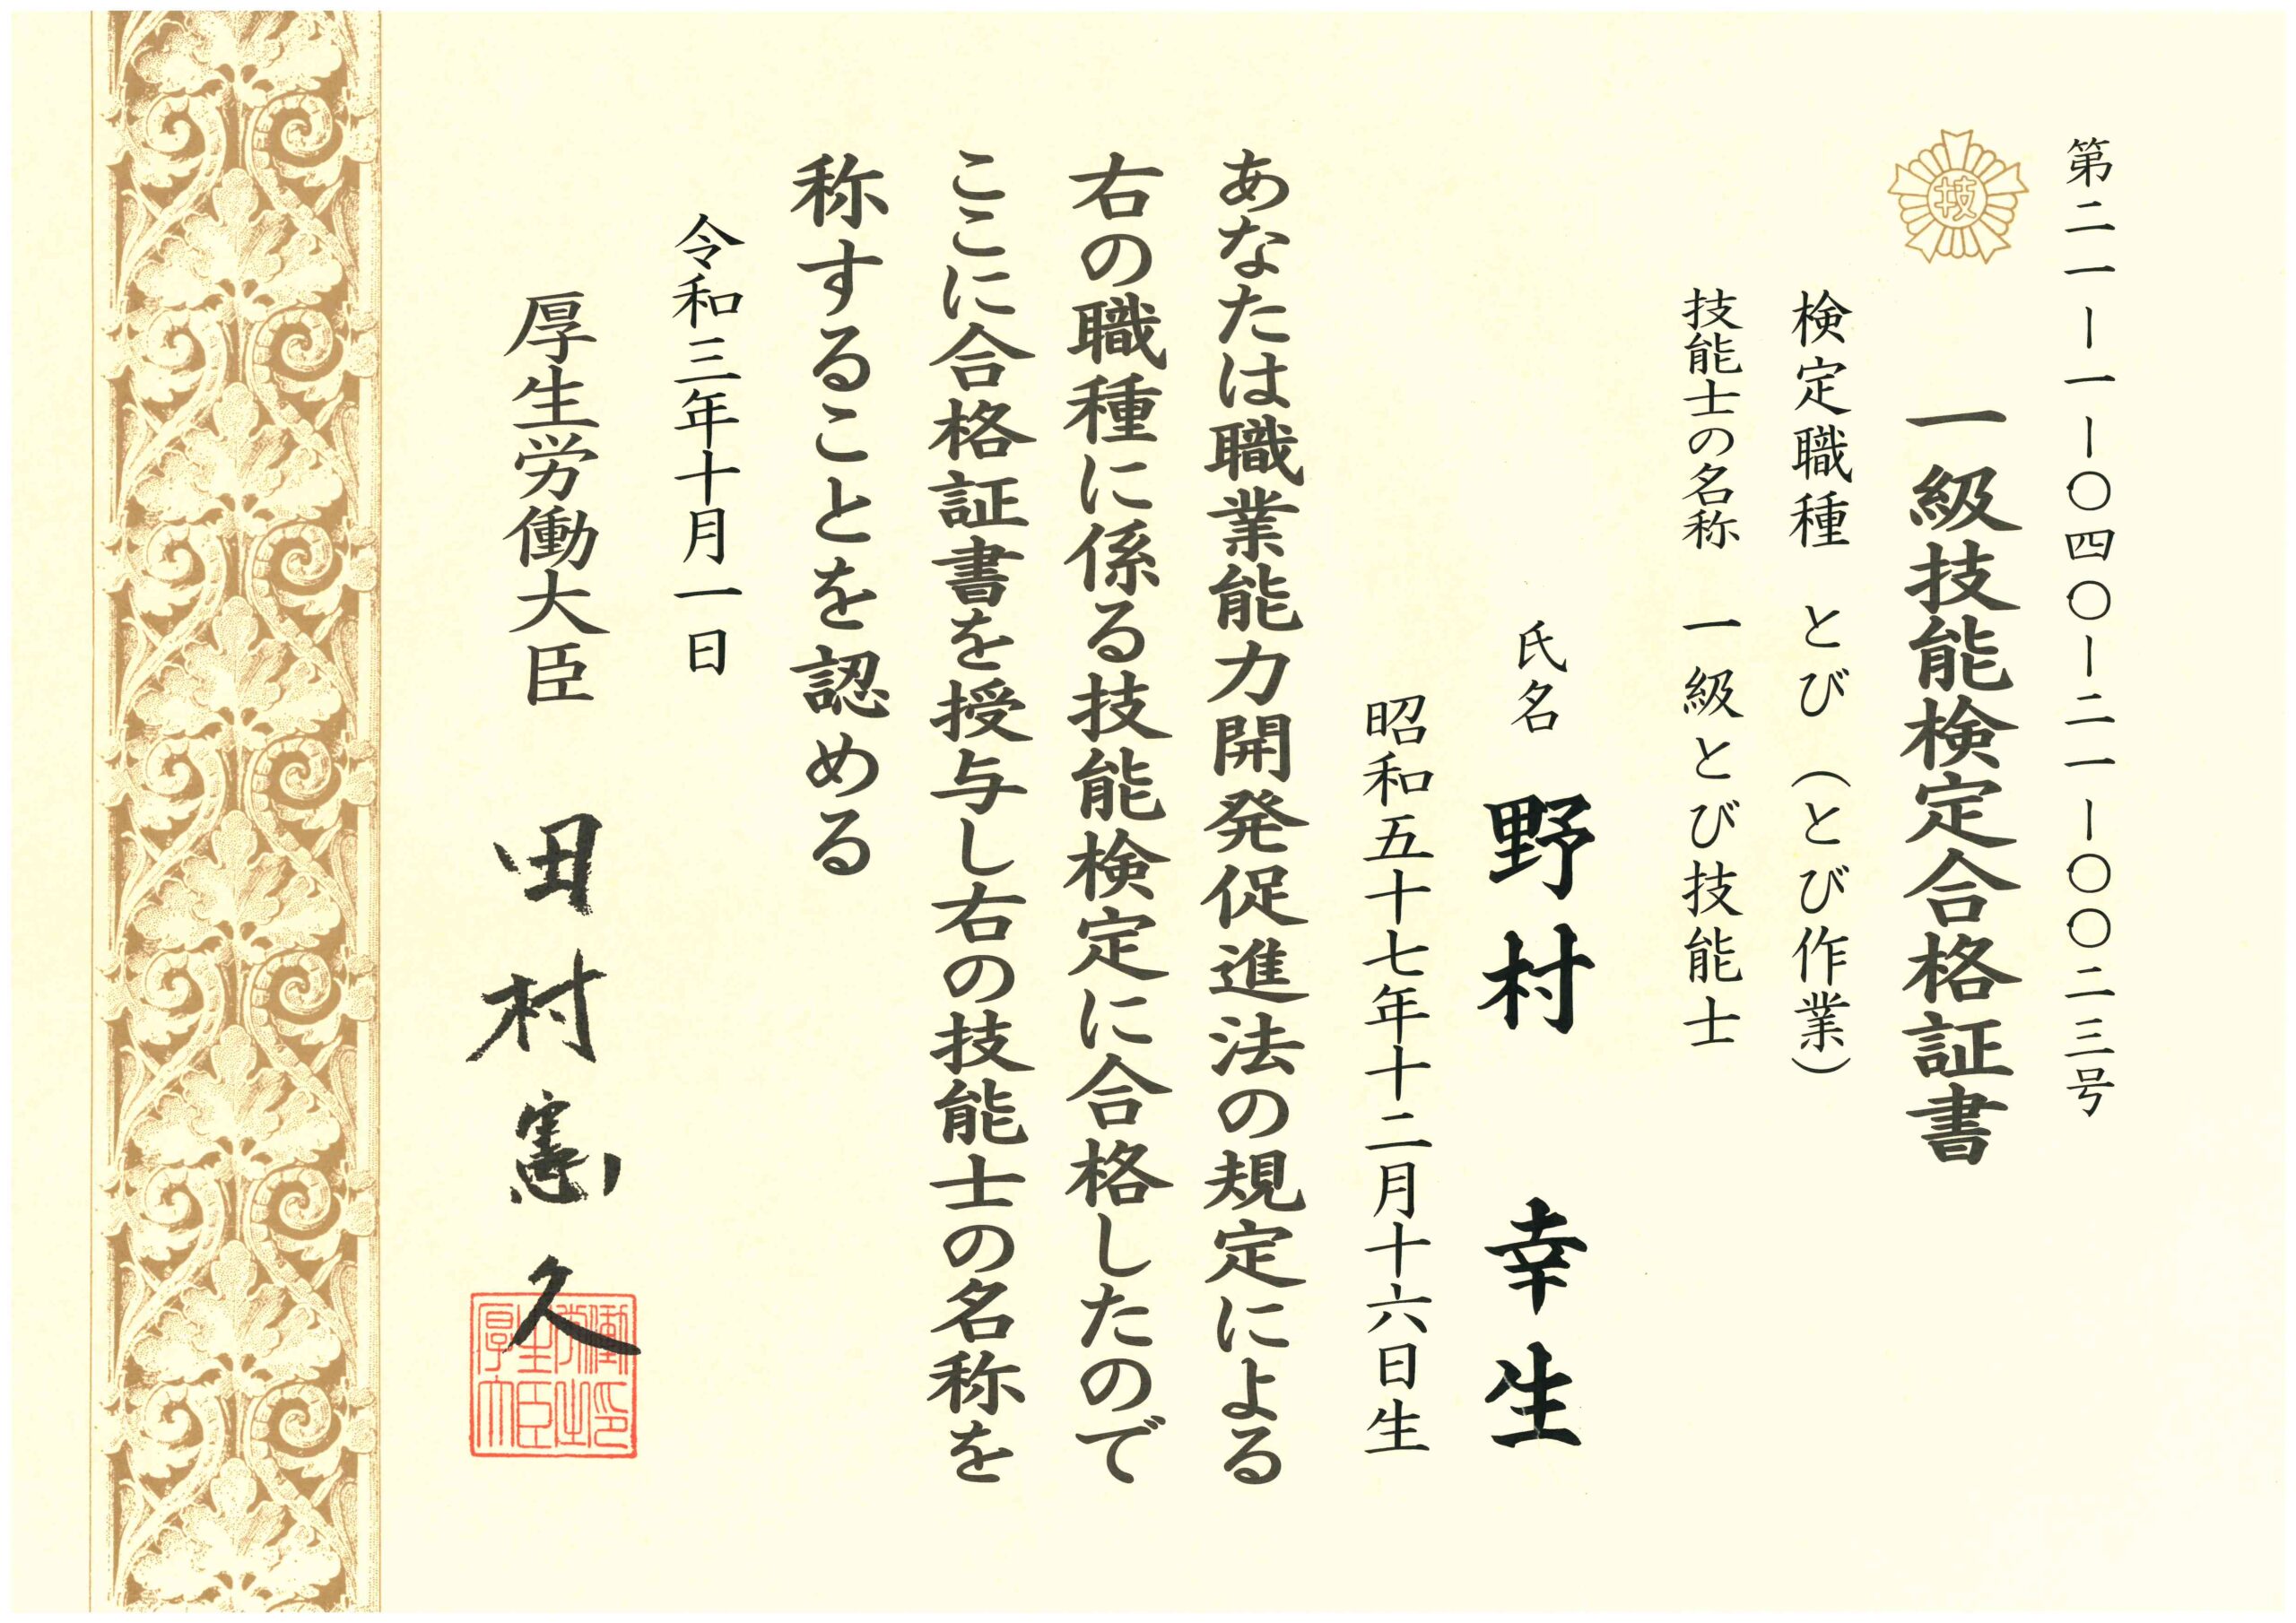 第二一－一－〇四〇－二一－〇〇二三号
技
一級技能検定合格証書
検定職種　とび（とび作業）
技能士の名称　一級とび技能士
氏名　野村　幸生
昭和五十七年十二月十六日生
あなたは職業能力開発促進法の規定による
右の職種に係る技能検定に合格したので
ここに合格証書を授与し右の技能士の名称を
称することを認める
令和三年十月一日
厚生労働大臣　田村憲久